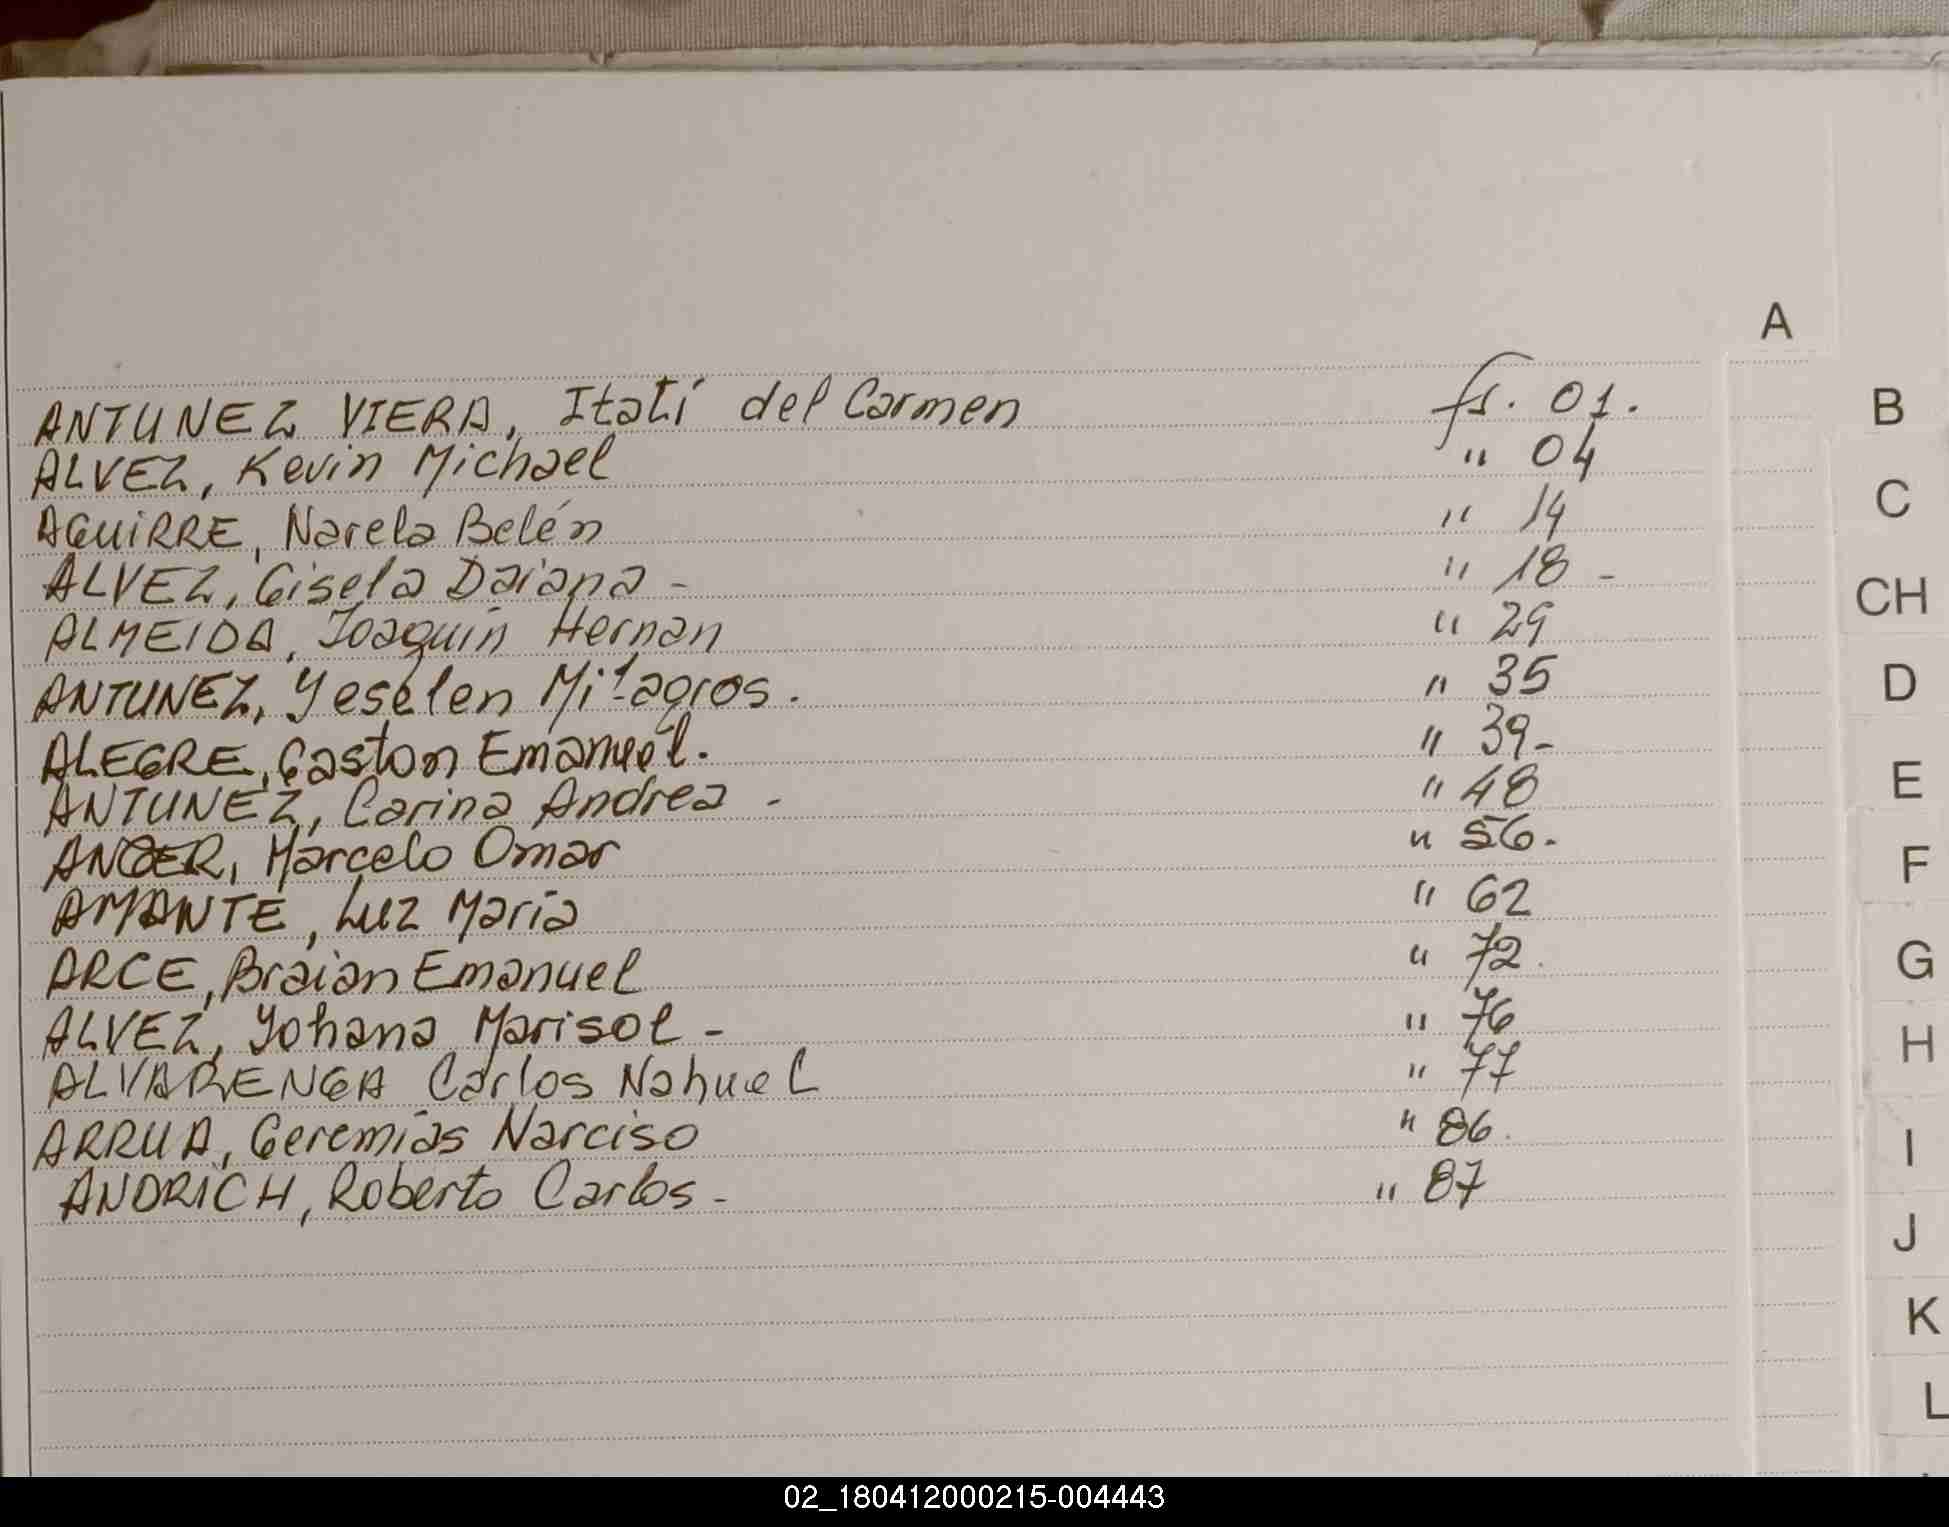 A
ANTUNEZ VIERA, Itatí del Carmen fs. 01.
ALVEZ, Kevin Michael " 04
AGUIRRE, Narela Belén " 14
ALVEZ, Gisela Daiana - " 18 -
ALMEIDA, Joaquín Hernan " 29
ANTUNEZ, Yesélen Milagros. " 35
ALEGRE, Gaston Emanuel. " 39-
ANTUNEZ, Carina Andrea - " 48
Marcelo Omar " 56.
AMANTE, Luz María " 62
ARCE, Braian Emanuel " 72.
ALVEZ, Yohana Marisol - " 76
ALVARENGA Carlos Nahuel " 77
ARRUA, Geremías Narciso " 86.
ANDRICH, Roberto Carlos - " 87
B
C
CH
D
E
F
G
H
I
J
K
L
02_180412000215-004443